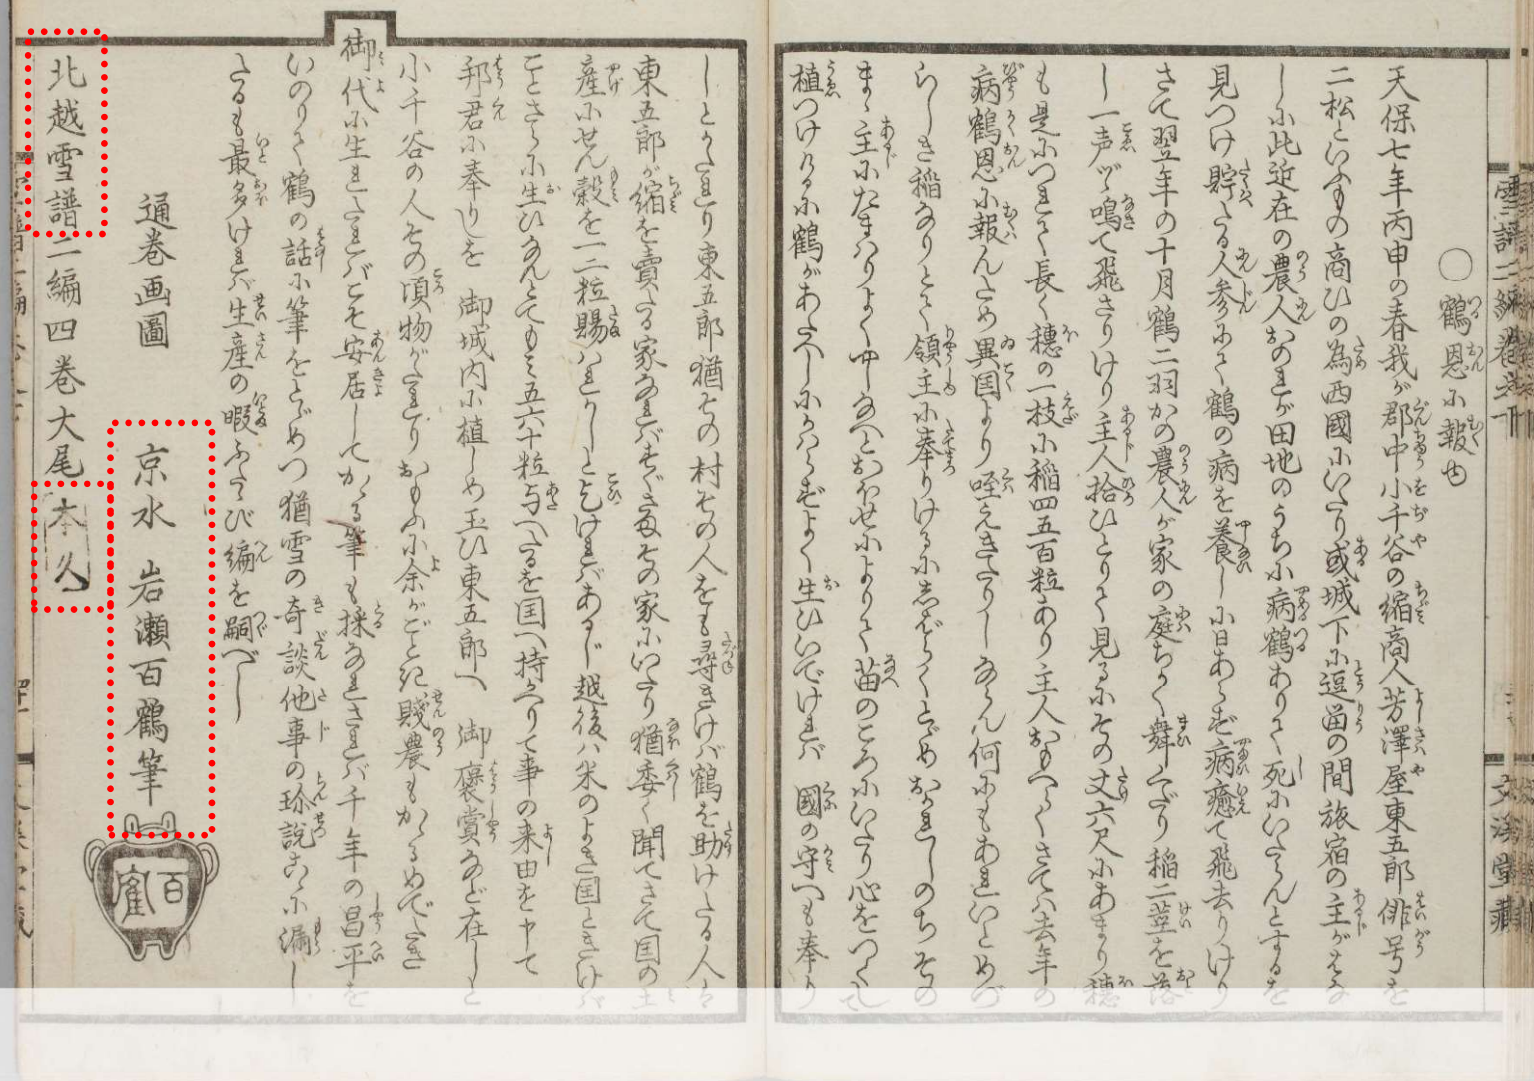 ○鶴恩に報ゆ
天保七年丙申の春我が郡中小千谷の縮商人芳澤屋東五郎俳号を
二松といふもの商ひの為西國にいたり或城下に逗畄の間旅宿の主がはな
しに此近在の農人おのれが田地のうちに病鶴ありて死にいたらんとするを
見つけ貯たる人参にて鶴の病を養しに日あらず病癒て飛去りけり
さて翌年の十月鶴二羽かの農人が家の庭ちかく舞くだり稲二茎を落
し一声づゝ鳴て飛さりけり主人拾ひとりて見るにその丈六尺にあまり穂
も是につれて長く穂の一枝に稲四五百粒あり主人おもへらくさては去年の
病鶴恩に報んため異国より咥えきたりしならん何にもあれいとめづ
らしき稲なりとて領主に奉りけるにしばらくとゞめおかれしのちその
まゝ主にたまはりよくやしなへとおほせによりて苗のころにいたり心をつくして
植つけけるに鶴があたへしにかはらずよく生ひいでければ 國の守へも奉り
しとかたれり東五郎猶その村その人をも尋きけば鶴を助けたる人は
東五郎が縮を賣たる家なればすぐさまその家にいたり猶委く聞てさて国の土
産にせん穀を一二粒賜はれかしと乞ければあるじ越後は米のよき国ときけば
ことさらに生ひなんとてもみ五六十粒与へたるを国へ持かへりて事の来由を申て
邦君に奉りしを 御城内に植しめ玉ひ東五郎へ 御褒賞など在しと
小千谷の人その頃物がたれりおもふに余がごとき賤農もかゝるめでたき
御代に生れたればこそ安居してかゝる筆も採なれされば千年の昌平を
いのりて鶴の話に筆をとゞめつ猶雪の奇談他事の珍説こゝに漏し
たるも最多ければ生産の暇ふたゝび編を嗣べし
通巻画圖
京水 岩瀬百鶴筆
百鶴
北越雪譜二編四巻大尾